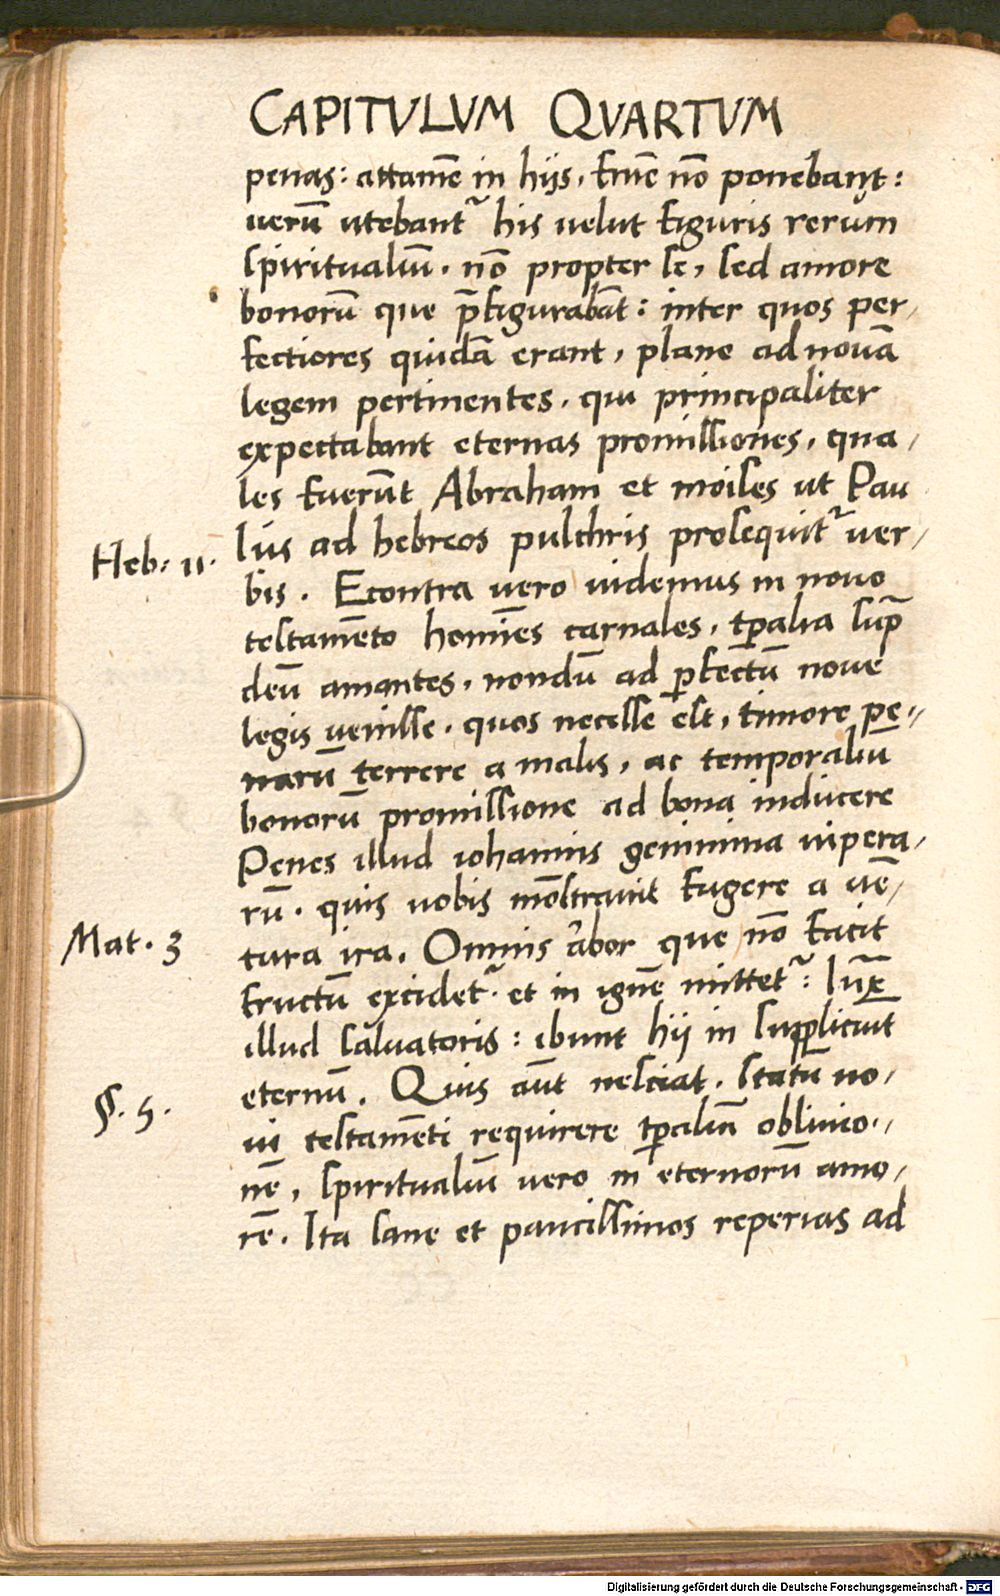 CAPITULUM QVARTUM
penas: attamē in hijs, finē nō ponebant:
verū utebant᷑ his velut figuris rerum
spiritualiū. nō propter se, sed amore
bonorū que p̄figurabāt: inter quos per,
fectiores quidā erant, plane ad novā
legem pertinentes. qui principaliter
expectabant eternas promissiones, qua,
les fuerūt Abraham et moises ut Pau
lus ad hebreos pulchris prosequit᷑ ver,
Heb. 11.
bis. Econtra vero videmus in novo
testamēto homīes carnales, tp̄alia sup̄
deū amantes, nondū ad ꝑfectū nove
legis venisse. quos necesse est, timore pe,,
narū terrere a malis, ac temporaliū
bonorū promissione ad bona inducere
Penes illud iohannis genimina vipera,
rū. quis vobis mōstravit fugere a vē,
tura ira. Omnis arbor que nō facit
Mat. 3
fructū excidet᷑. et in ignē mittet᷑: Iux̄
illud salvatoris: ibunt hij in suppliciūt
eternū. Quis aūt nesciat. statū no,
§. 5.
vi testamēti requirere tp̄aliū oblivio,,
nē, spiritualiū vero in eternorū amo,
rē. Ita sane et paucissimos reperias ad
Digitalisierung gefördert durch die Deutsche Forschungsgemeinschaft - DFG